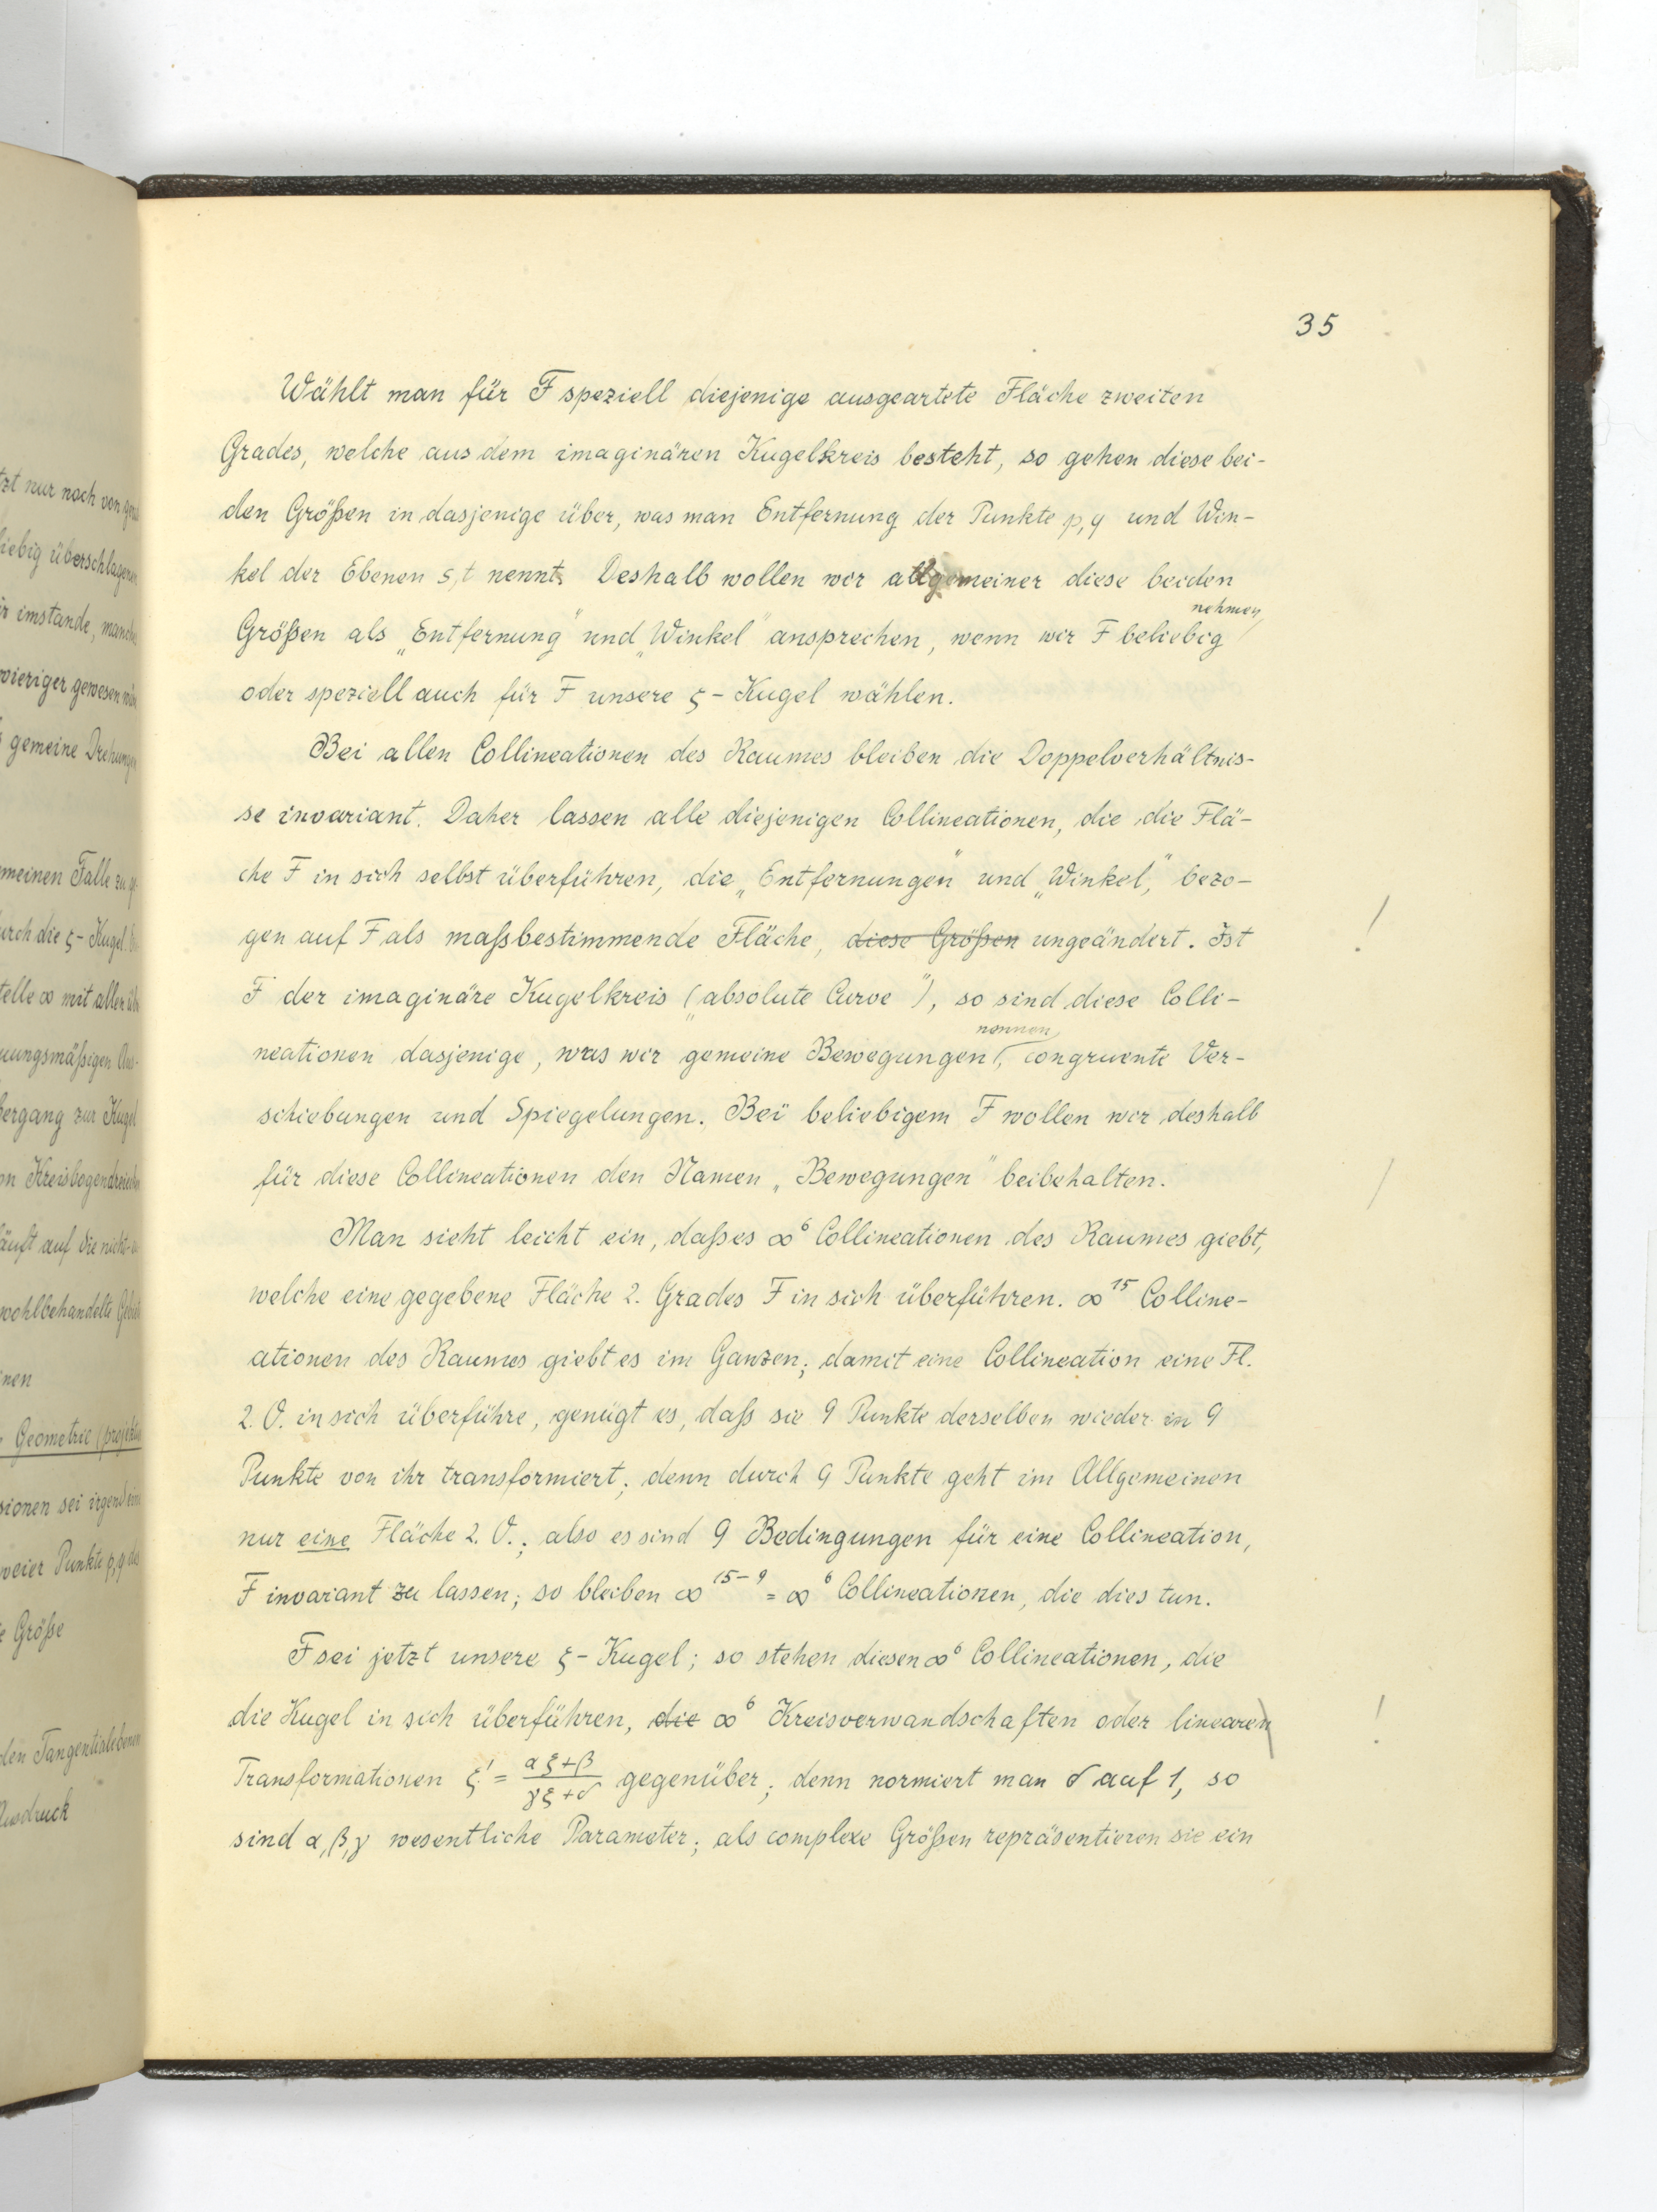 35
Wählt man für F speziell diejenige ausgeartete Fläche zweiten
Grades, welche aus dem imaginären Kugelkreis besteht, so gehen diese bei-
den Größen in dasjenige über, was man Entfernung der Punkte p, q und Win-
kel der Ebenen s, t nennt. Deshalb wollen wir allgemeiner diese beiden
nehmen,
Größen als „Entfernung" und „Winkel" ansprechen, wenn wir F beliebig
oder speziell auch für F unsere ζ-Kugel wählen.
Bei allen Collineationen des Raumes bleiben die Doppelverhältnis-
se invariant. Daher lassen alle diejenigen Collineationen, die die Flä-
che F in sich selbst überführen, die „Entfernungen" und „Winkel," bezo-
gen auf F als maßbestimmende Fläche, diese Größen ungeändert. Ist
F der imaginäre Kugelkreis („absolute Curve"), so sind diese Colli-
nennen
neationen dasjenige, was wir gemeine Bewegungen, congruente Ver-
schiebungen und Spiegelungen. Bei beliebigem F wollen wir deshalb
für diese Collineationen den Namen „Bewegungen" beibehalten.
Man sieht leicht ein, daß es ∞⁶ Collineationen des Raumes giebt,
welche eine gegebene Fläche 2. Grades F in sich überführen. ∞¹⁵ Colline-
ationen des Raumes giebt es im Ganzen; damit eine Collineation eine Fl.
2. O. in sich überführe, genügt es, daß sie 9 Punkte derselben wieder in 9
Punkte von ihr transformiert; denn durch 9 Punkte geht im Allgemeinen
nur eine Fläche 2. O.; also es sind 9 Bedingungen für eine Collineation,
F invariant zu lassen; so bleiben ∞¹⁵⁻⁹ = ∞⁶ Collineationen, die dies tun.
F sei jetzt unsere ζ-Kugel; so stehen diesen ∞⁶ Collineationen, die
die Kugel in sich überführen, die ∞⁶ Kreisverwandschaften oder linearen
Transformationen ξ' = (αξ+β)/(γξ+δ) gegenüber; denn normiert man δ auf 1, so
sind α, β, γ wesentliche Parameter; als complexe Größen repräsentieren sie ein